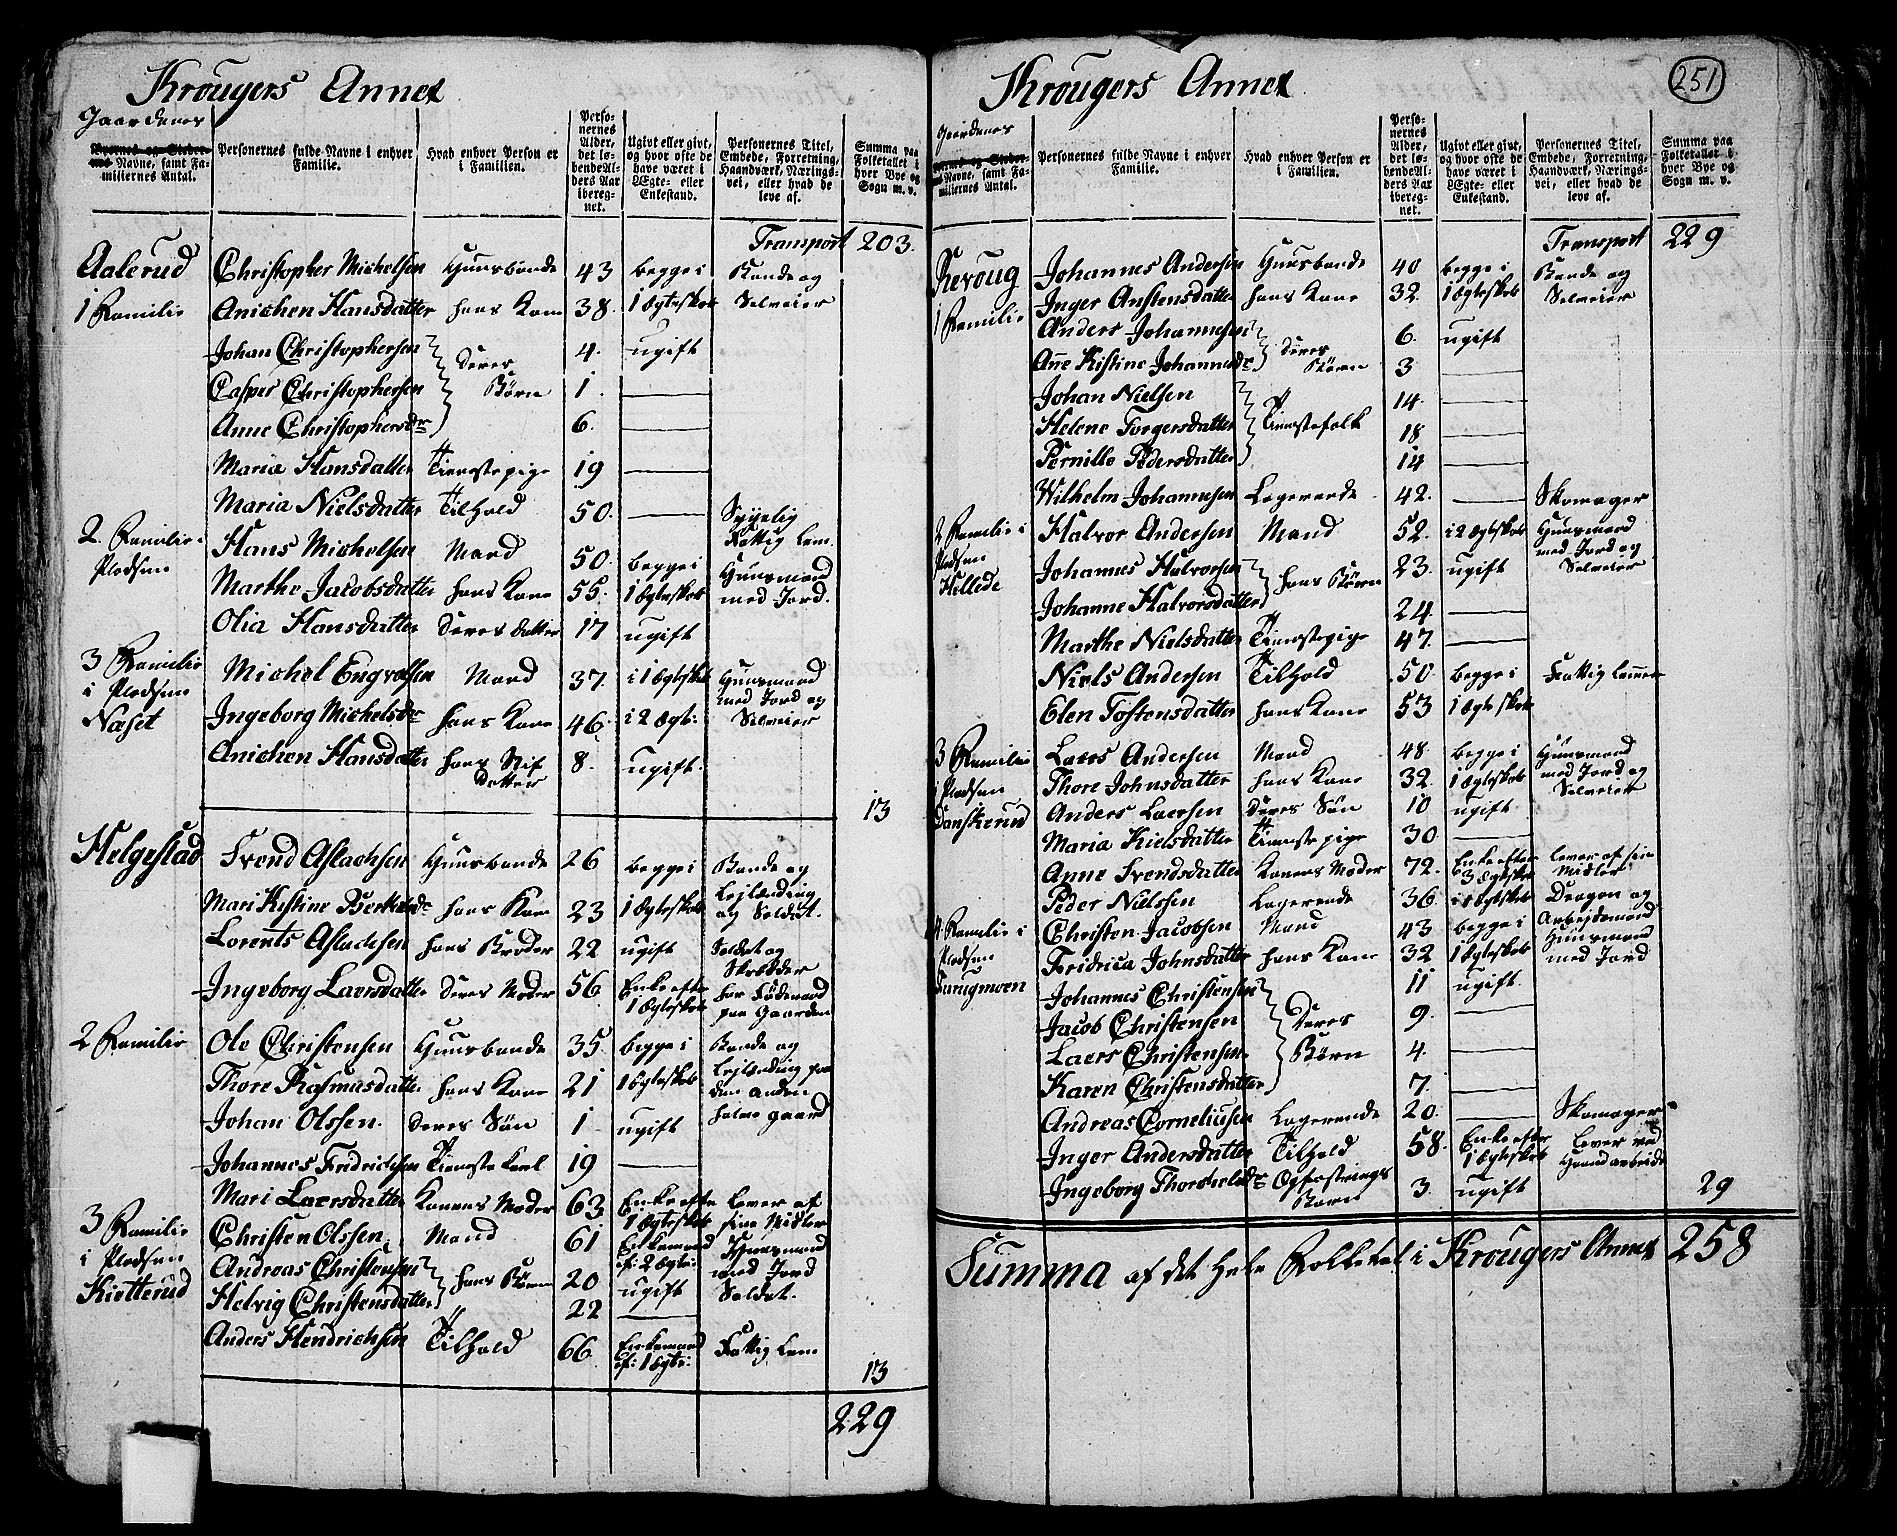 Krougers Annex
Gaardenes
Byernes og Steder-
nes Navne, samt Fa-
miliernes Antal.
Personernes fulde Navne i enhver Familie.
Hvad enhver Person er i Familien.
Perso-
nernes
Alder,
det lø-
bende Al-
ders Aar
iberegnet.
Ugivt eller givt,
og hvor ofte de
have været i
Ægte- eller
Enkestand.
Personernes Titel,
Embede, Forretning,
Haandværk, Nærings-
vei, eller hvad de
leve af.
Summa paa
Folketallet i
hver Bye og
Sogn m. v.
Transport 203.
Aalerud Christopher Michelsen Huusbonde 43 begge i Bonde og
1 Familie Anichen Hansdatter hans Kone 38. 1 Ægteskab Selveier
Johan Christophersen Deres 4. ugift
Casper Christophersen Børn 1.
Anne Christophersdr 6.
Maria Hansdatter Tienestepige 19
Maria Nielsdatter Tilhold 50. Sygelig Fattig Lem.
2 Familie i Hans Michelsen Mand 50. begge i Huusmand
Pladsen Marthe Jacobsdatter hans Kone 55. 1 Ægteskab med Jord.
Olia Hansdatter Deres datter 17 ugift
3 Familie Michel Engvoldsen Mand 37. i 1 Ægteskab Huusmand
i Pladsen med Jord og
Næset Ingeborg Michelsdr hans Kone 46. i 2 Ægte: Selveier
Anichen Hansdatter hans Stif Datter 8. ugift.
13
Helgestad Svend Aslachsen Huusbonde 26 begge i Bonde og
Mari Kistine hans Kone 23 1 Ægteskab Leilænding og Soldat.
Lorents Aslachsen hans Broder 22 ugift Soldat og Skrædder
Ingeborg Laersdatter Deres Moder 56. Enke efter 1 Ægteskab har Føderaad paa Gaarden
2 Familie Ole Christensen Huusbonde 35. begge i Bonde og
Thore Rasmusdatter hans Kone 21 1 Ægteskab Leilænding paa den anden
Johan Olssen. deres Søn 1. ugift halve gaard
Johannes Fridrichsen Tieneste Karl 19
Mari Laersdatter Konens Moder 63 Enke efter 1 Ægteskab Lever af sine Midler
3 Familie Christen Olssen Mand 61 Enkemand ef: 2 Ægte: Huusmand med Jord
i Pladsen Andreas Christensen hans Børn 20 ugift Soldat.
Kietterud Helvig Christensdatter 22
Anders Hendrichsen Tilhold 66 Enkemand ef: 1 Ægte: Fattig Lem
13
229
Krougers Annex
251
Gaardenes
Byernes og Steder-
nes Navne, samt Fa-
miliernes Antal.
Personernes fulde Navne i enhver Familie.
Hvad enhver Person er i Familien.
Perso-
nernes
Alder,
det lø-
bende Al-
ders Aar
iberegnet.
Ugivt eller givt,
og hvor ofte de
have været i
Ægte- eller
Enkestand.
Personernes Titel,
Embede, Forretning,
Haandværk, Nærings-
vei, eller hvad de
leve af.
Summa paa
Folketallet i
hver Bye og
Sogn m. v.
Transport 229
Johannes Andersen Huusbonde 40 begge i Bonde og
Inger Anstensdatter hans Kone 32. 1 Ægteskab Selveier
1 Familie Anders Johannesen Deres 6. ugift
Ane Kistine Johannesdr Børn 3
Johan Nielsen 14.
Helene Torgersdatter Tienestefolk 18
Pernille Pedersdatter 14
Wilhelm Johannesen Logerende 42. Skomager
2 Familie i Halvor Andersen Mand 52. i 2 Ægteskab Huusmand
Pladsen med Jord og
Hellede Johannes Halvorsen hans Børn 23. ugift Selveier
Johanne Halvorsdatter 24
Marthe Nielsdatter Tienestepige 47.
Niels Andersen Tilhold 50. begge i Fattig Lemer
Elen Tostensdatter hans Kone 53 1 Ægteskab
3 Familie Laers Andersen Mand 48. begge i Huusmand
i Pladsen Thore Johnsdatter hans Kone 32. 1 Ægteskab med Jord og
Danskerud Anders Laersen Deres Søn 10 ugift Selveier
Maria Kielsdatter Tienestepige 30
Anne Svendsdatter Konens Moder 72. Enke efter 3 Ægteskab Lever af sin Midler
Peder Nielssen Logerende 36. i 1 Ægteskab Dragon og Arbejdsmand
4 Familie i Christen Jacobsen Mand 43 begge i Huusmand
Pladsen Fridrica Johnsdatter hans Kone 32 1 Ægteskab med Jord
Johannes Christensen 11 ugift
Jacob Christensen Deres 9.
Laers Christensen Børn 4.
Karen Christensdatter 7.
Andreas Corneliusen Logerende 20. Skomager
Inger Andersdatter Tilhold 58. Enke efter 1 Ægteskab Lever ved Haandarbeide
Ingeborg Thorkeldr Opfostrings Barn 3. ugift
29
Summa af det hele Folketal i Krougers Annex 258